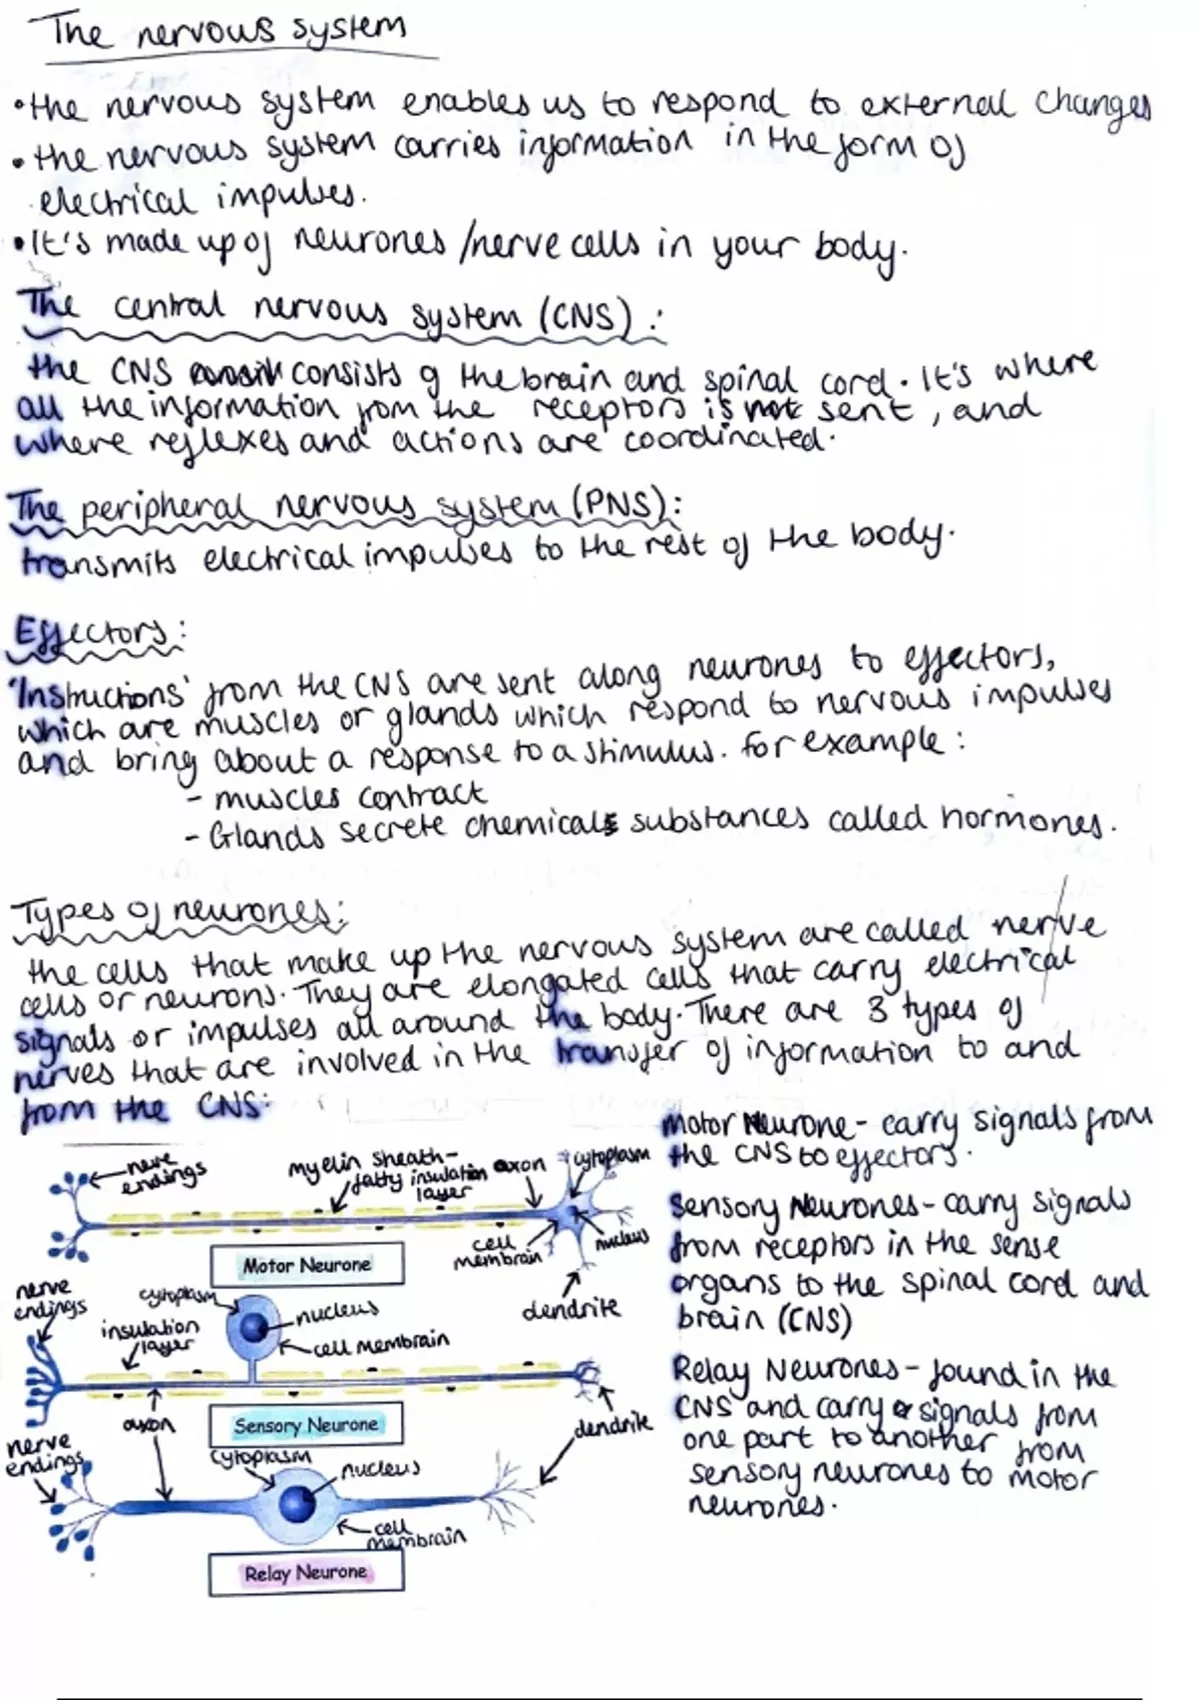 The nervous system
• the nervous system enables us to respond to external changes
• the nervous system carries information in the form of
electrical impulses.
• It's made up of neurones /nerve cells in your body.
The central nervous system (CNS) :
the CNS consists of the brain and spinal cord. It's where
all the information from the receptors is sent, and
where reflexes and actions are coordinated.
The peripheral nervous system (PNS):
transmits electrical impulses to the rest of the body.
Effectors:
'Instructions' from the CNS are sent along neurones to effectors,
which are muscles or glands which respond to nervous impulses
and bring about a response to a stimulus. for example:
- muscles contract
- Glands secrete chemical substances called hormones.
Types of neurones:
the cells that make up the nervous system are called nerve
cells or neurons. They are elongated cells that carry electrical
signals or impulses all around the body. There are 3 types of
nerves that are involved in the transfer of information to and
from the CNS:
nerve endings
myelin sheath - fatty insulation layer
axon
cytoplasm
cell membrain
nucleus
dendrite
Motor Neurone
nerve endings
cytoplasm
insulation layer
nucleus
cell membrain
axon
dendrite
Sensory Neurone
nerve endings
cytoplasm
nucleus
cell membrain
Relay Neurone
Motor Neurone - carry signals from
the CNS to effectors.
Sensory Neurones - carry signals
from receptors in the sense
organs to the spinal cord and
brain (CNS)
Relay Neurones - found in the
CNS and carry signals from
one part to another from
sensory neurones to motor
neurones.